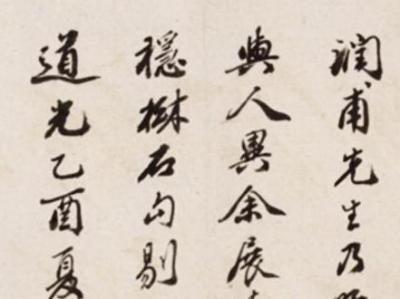 潤甫先生乃
與人異余展
穩樹石勾剔
道光乙酉夏